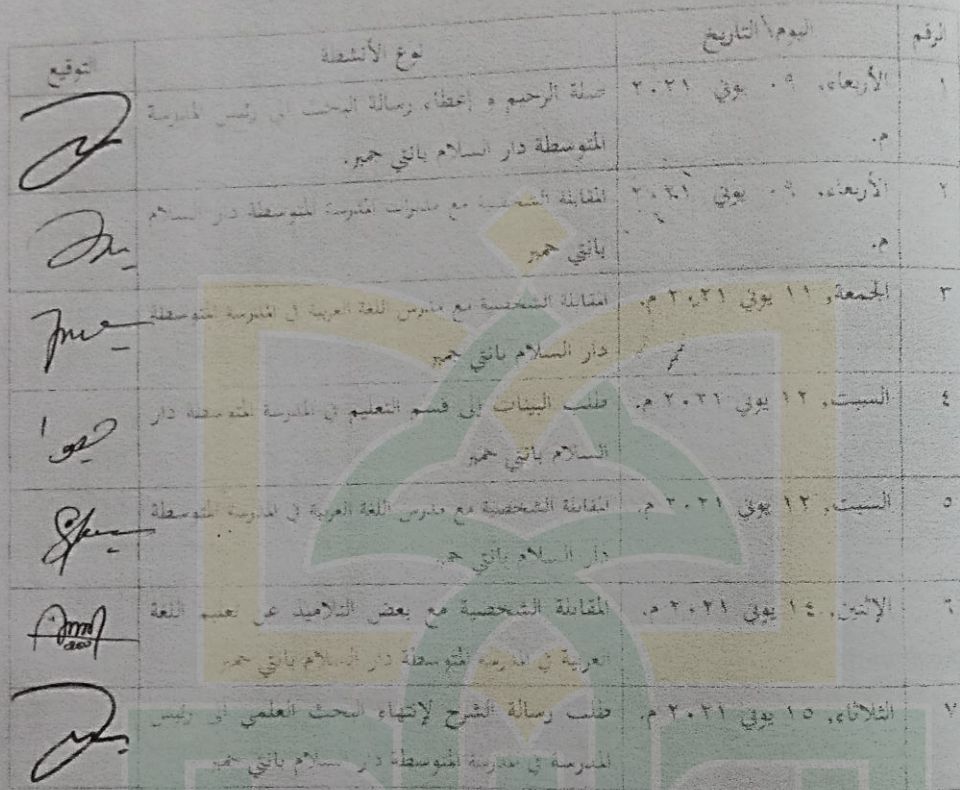 الرقم اليوم\التاريخ نوع الأنشطة التوقيع
١ الأربعاء, ٠٩ يوني ٢٠٢١ صلة الرحيم و إعطاء رسالة البحث إلى رئيس المدرسة
م. المتوسطة دار السلام بانتي جمبر.
٢ الأربعاء, ٠٩ يوني ٢٠٢١ المقابلة الشخصية مع المدرسة المتوسطة دار السلام
م. بانتي جمبر
٣ الجمعة, ١١ يوني ٢٠٢١ م. المقابلة الشخصية مع مدرس اللغة العربية في المدرسة المتوسطة
دار السلام بانتي جمبر
٤ السبت, ١٢ يوني ٢٠٢١ م. طلب البينات إلى قسم التعليم في المدرسة المتوسطة دار
السلام بانتي جمبر
٥ السبت, ١٢ يوني ٢٠٢١ م. المقابلة الشخصية مع مدرس اللغة العربية في المدرسة المتوسطة
دار السلام بانتي جمبر
٦ الإثنين, ١٤ يوني ٢٠٢١ م. المقابلة الشخصية مع بعض التلاميذ عن تعليم اللغة
العربية في المدرسة المتوسطة دار السلام بانتي جمبر
٧ الثلاثاء, ١٥ يوني ٢٠٢١ م. طلب رسالة الشرح لإنتهاء البحث العلمي إلى رئيس
المدرسة في المدرسة المتوسطة دار السلام بانتي جمبر